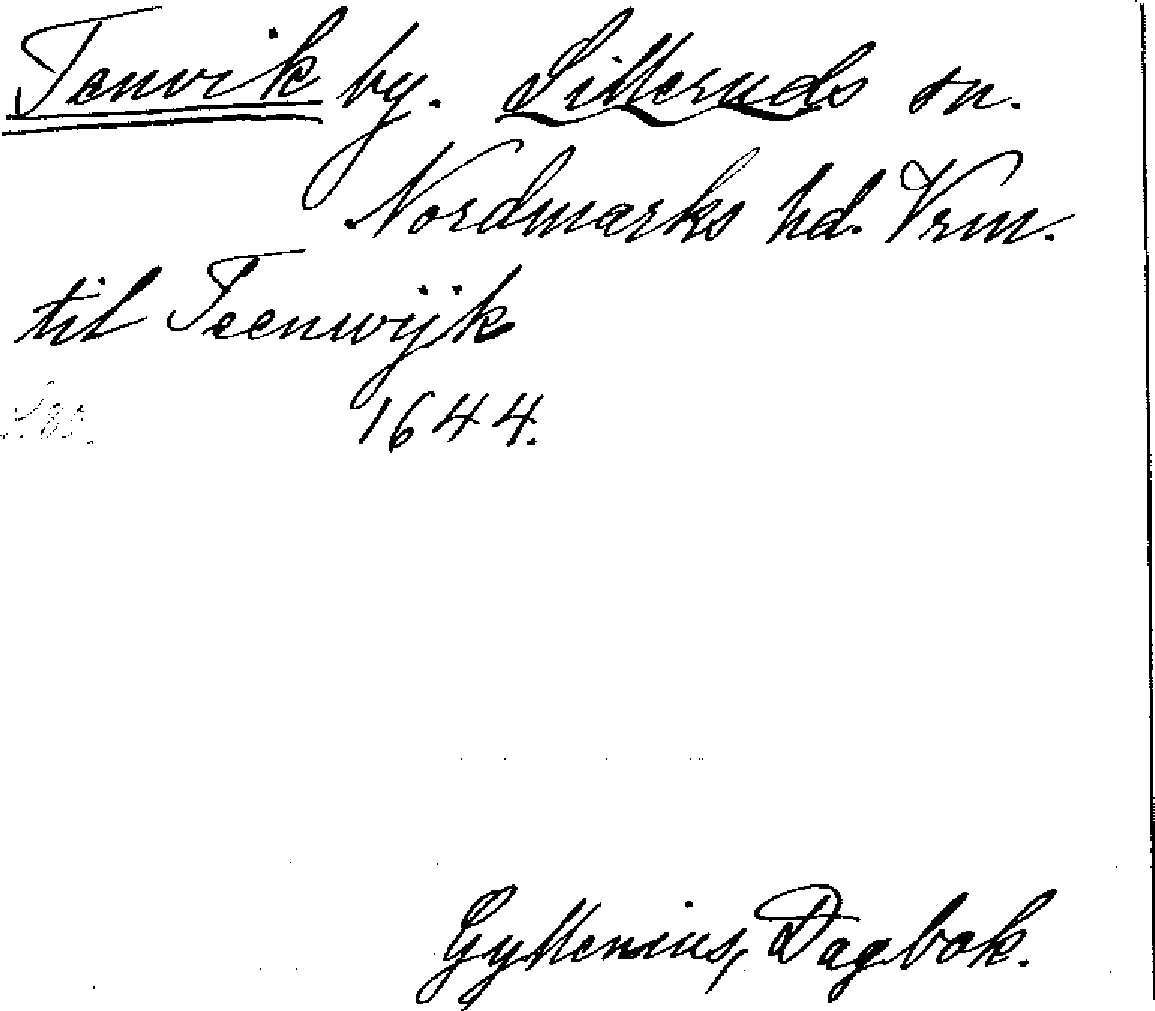 Tenvik by. Silleruds sn.
Nordmarks hd. Vrm.
till Teenwijk
1644.
Gyllenius, Dagbok.